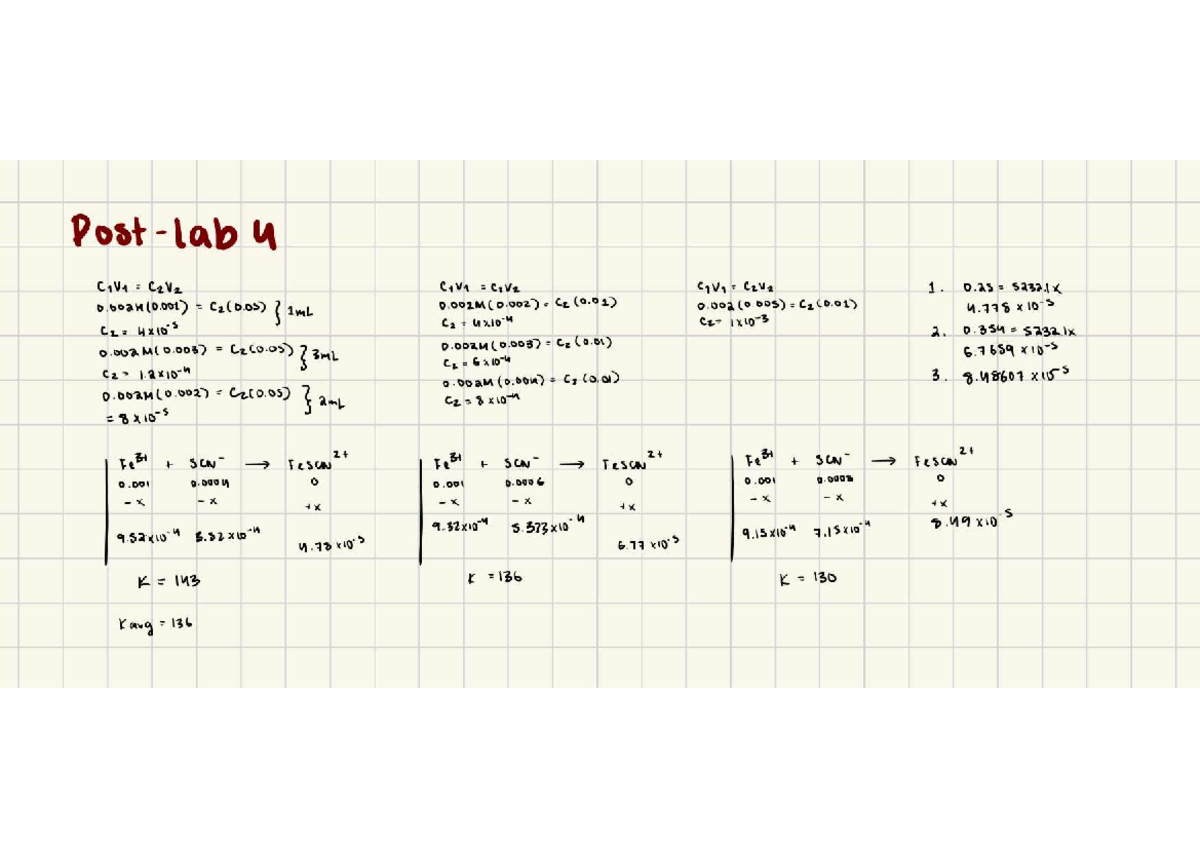 Post-lab 4
C₁V₁ = C₂V₂
0.002M(0.001) = C₂(0.05) } 1mL
C₂ = 4x10⁻⁵
0.002M(0.003) = C₂(0.05) } 3mL
C₂ = 1.2x10⁻⁴
0.002M(0.002) = C₂(0.05) } 2mL
= 8 x10⁻⁵
C₁V₁ = C₂V₂
0.002M(0.002) = C₂(0.01)
C₂ = 4x10⁻⁴
0.002M(0.003) = C₂(0.01)
C₂ = 6x10⁻⁴
0.002M(0.004) = C₂(0.01)
C₂ = 8 x10⁻⁴
C₁V₁ = C₂V₂
0.002(0.005) = C₂(0.01)
C₂ = 1x10⁻³
1. 0.25 = 5232.1x
4.778 x 10⁻⁵
2. 0.354 = 5232.1x
6.7659 x10⁻⁵
3. 8.48607 x10⁻⁵
Fe³⁺ + SCN⁻ → FeSCN²⁺
0.001 0.0004 0
-x -x +x
9.52x10⁻⁴ 3.52x10⁻⁴ 4.78x10⁻⁵
K = 143
Kavg = 136
Fe³⁺ + SCN⁻ → FeSCN²⁺
0.001 0.0006 0
-x -x +x
9.32x10⁻⁴ 5.323x10⁻⁴ 6.77x10⁻⁵
K = 136
Fe³⁺ + SCN⁻ → FeSCN²⁺
0.001 0.0008 0
-x -x +x
9.15x10⁻⁴ 7.15x10⁻⁴ 8.49x10⁻⁵
K = 130